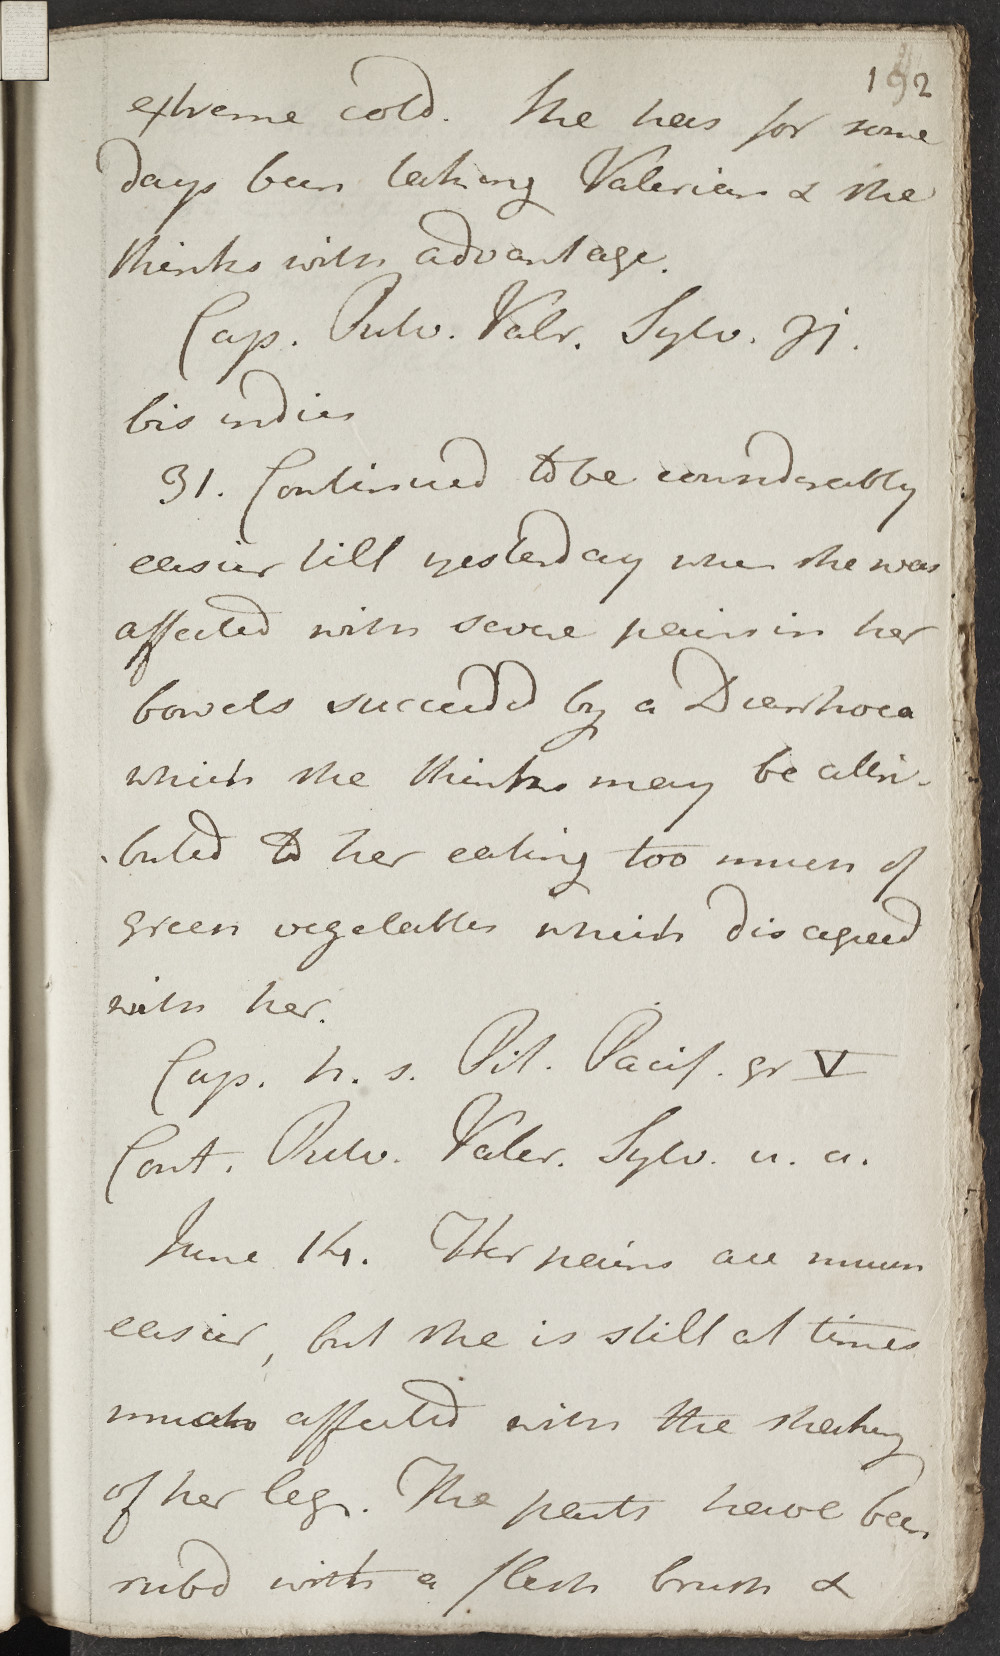 192
extreme cold. She has for some
days been taking Valerian & she
thinks with advantage.
Cap. Pulv. Valr. Sylv. ʒj.
bis indies
31. Continued to be considerably
easier till yesterday when she was
affected with severe pains in her
bowels succeedd by a Diarrhoea
which she thinks may be attri-
buted to her eating too much of
green vegetables which disagreed
with her.
Cap. h. s. Pil. Pacif. gr V
Cont. Pulv. Valer. Sylv. u. a.
June 14. Her pains are much
easier, but she is still at times
much affected with the shaking
of her legs. The parts have been
rubd with a flesh brush &